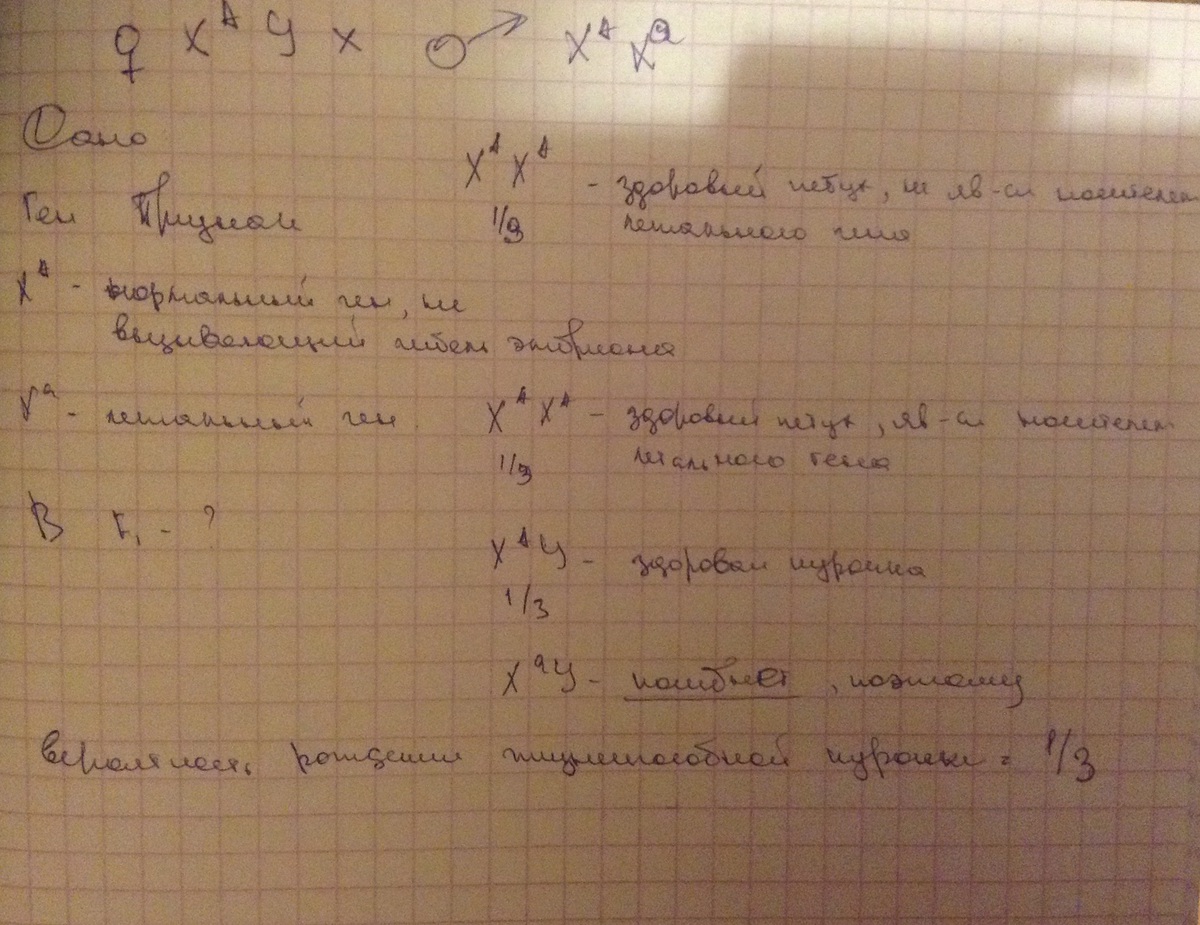 ♀ X^A У x ♂ X^A X^a
Дано
Ген Признак
X^A X^A - здоровый петух, не яв-ся носителем
1/3 летального гена
X^A - нормальный ген, не
вызывающий гибель эмбриона
X^a - летальный ген
X^A X^A - здоровый петух, яв-ся носителем
1/3 летального гена
В F₁ - ?
X^A У - здоровая курочка
1/3
X^a У - погибнет, поэтому
вероятность рождения жизнеспособной курочки = 1/3